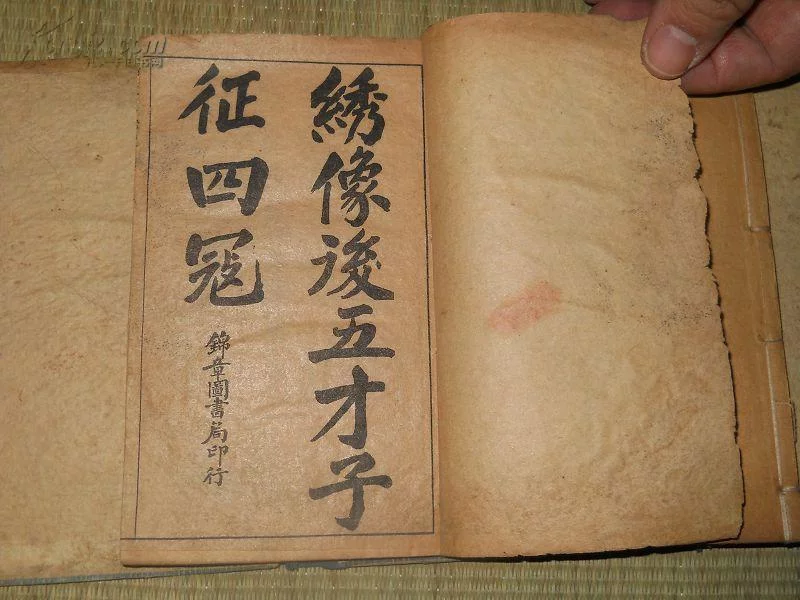 綉像後五才子
征四寇
錦章圖書局印行